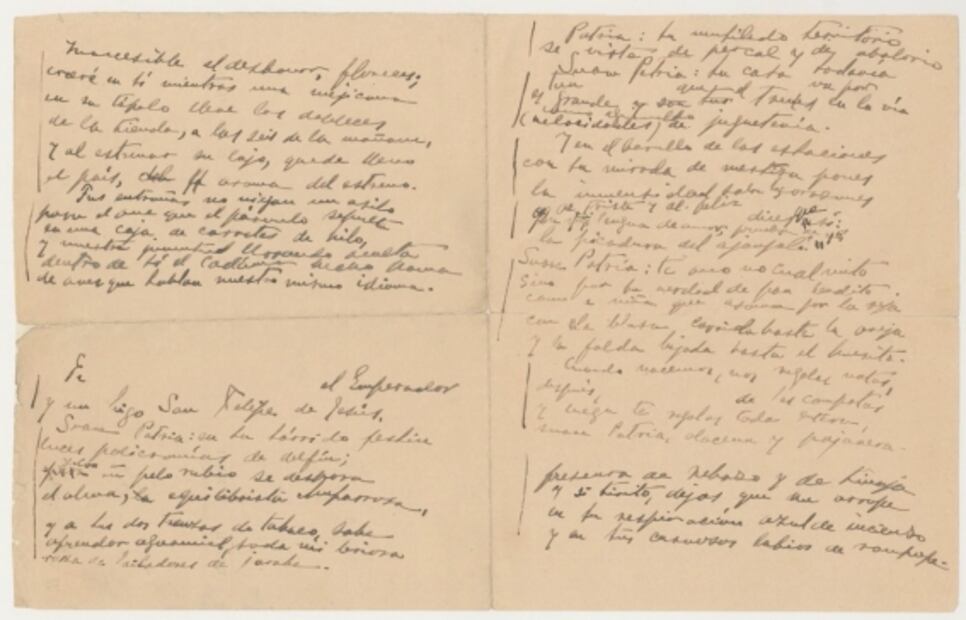 Inaccesible al deshonor, floreces;
creeré en ti mientras una mejicana
en su tápalo lleve los dobleces
de la tienda, a las seis de la mañana,
y al estrenar su lujo, quede lleno
el país, del aroma del estreno.
Tus entrañas no niegan un asilo
para el ave que el párvulo sepulta
en una caja de carretes de hilo,
y nuestra juventud, llorando, oculta
dentro de ti el cadáver hecho poma
de aves que hablan nuestro mismo idioma.
el Emperador
y un higo San Felipe de Jesús.
Suave Patria: en tu tórrido festín
luces policromías de delfín;
y con tu pelo rubio se desposa
el alma, equilibrista chuparrosa,
y a tus dos trenzas de tabaco, sabe
ofrendar aguamiel, toda mi briosa
raza de bailadores de jarabe.
Patria: tu mutilado territorio
se viste de percal y de abalorio
Suave Patria: tu casa todavía
es grande, que el tren va por la vía
como aguinaldo de juguetería.
Y en el barullo de las estaciones
con tu mirada de mestiza pones
la inmensidad sobre los corazones
triste y al feliz
lengua de amor dices que
la picadura del ajonjolí
Suave Patria: te amo no cual mito
sino por tu verdad de pan bendito
como a niña que asoma por la reja
con la blusa corrida hasta la oreja
y la falda bajada hasta el huesito.
Cuando nacemos, nos regalas notas,
después, de compotas
y luego te regalas toda entera,
suave Patria, alacena y pajarera.
de rebozo y de
y si tirito, dejas que me arrope
en tu respiración azul de incienso
y en tus carnosos labios de rompope.